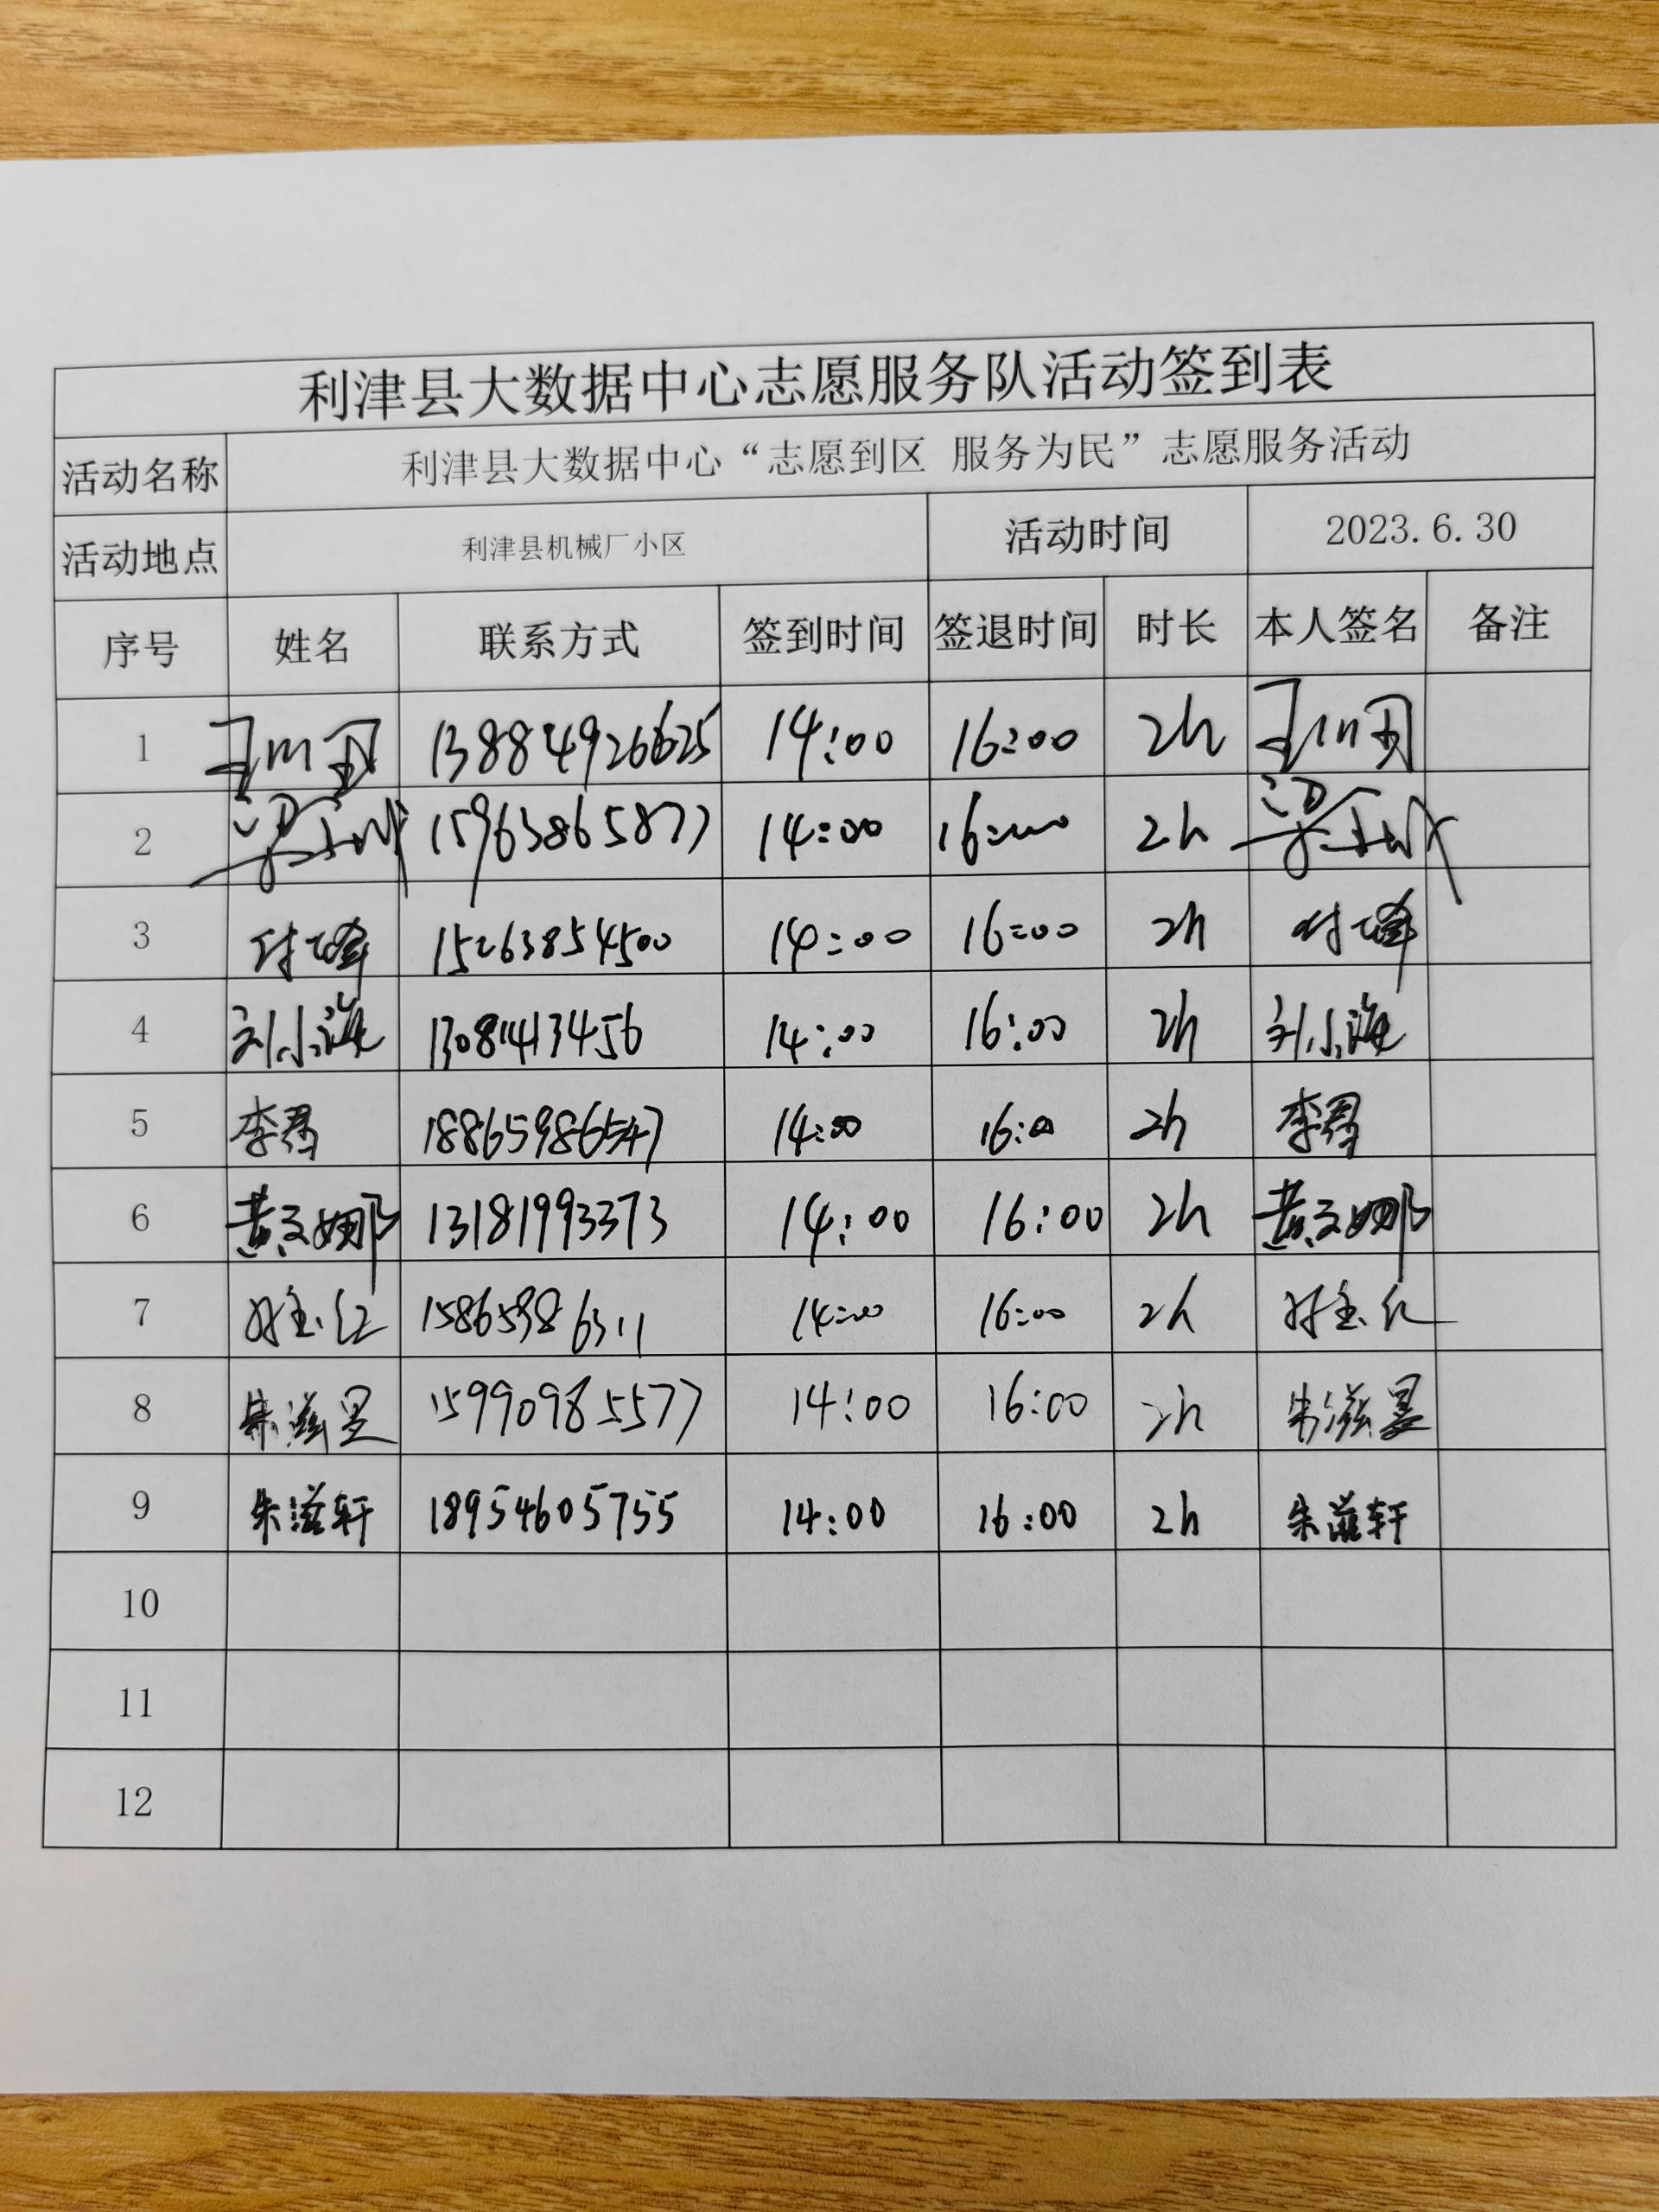 利津县大数据中心志愿服务队活动签到表
活动名称 利津县大数据中心“志愿到区 服务为民”志愿服务活动
活动地点 利津县机械厂小区 活动时间 2023.6.30
序号 姓名 联系方式 签到时间 签退时间 时长 本人签名 备注
1 13884926625 14:00 16:00 2h
2 15963865877 14:00 16:00 2h
3 15263854500 14:00 16:00 2h
4 刘小海 14:00 16:00 2h 刘小海
5 18865986547 14:00 16:00 2h
6 黄文娜 13181993373 14:00 16:00 2h 黄文娜
7 15865986311 14:00 16:00 2h
8 15990985577 14:00 16:00 2h
9 朱滋轩 18954605755 14:00 16:00 2h 朱滋轩
10
11
12